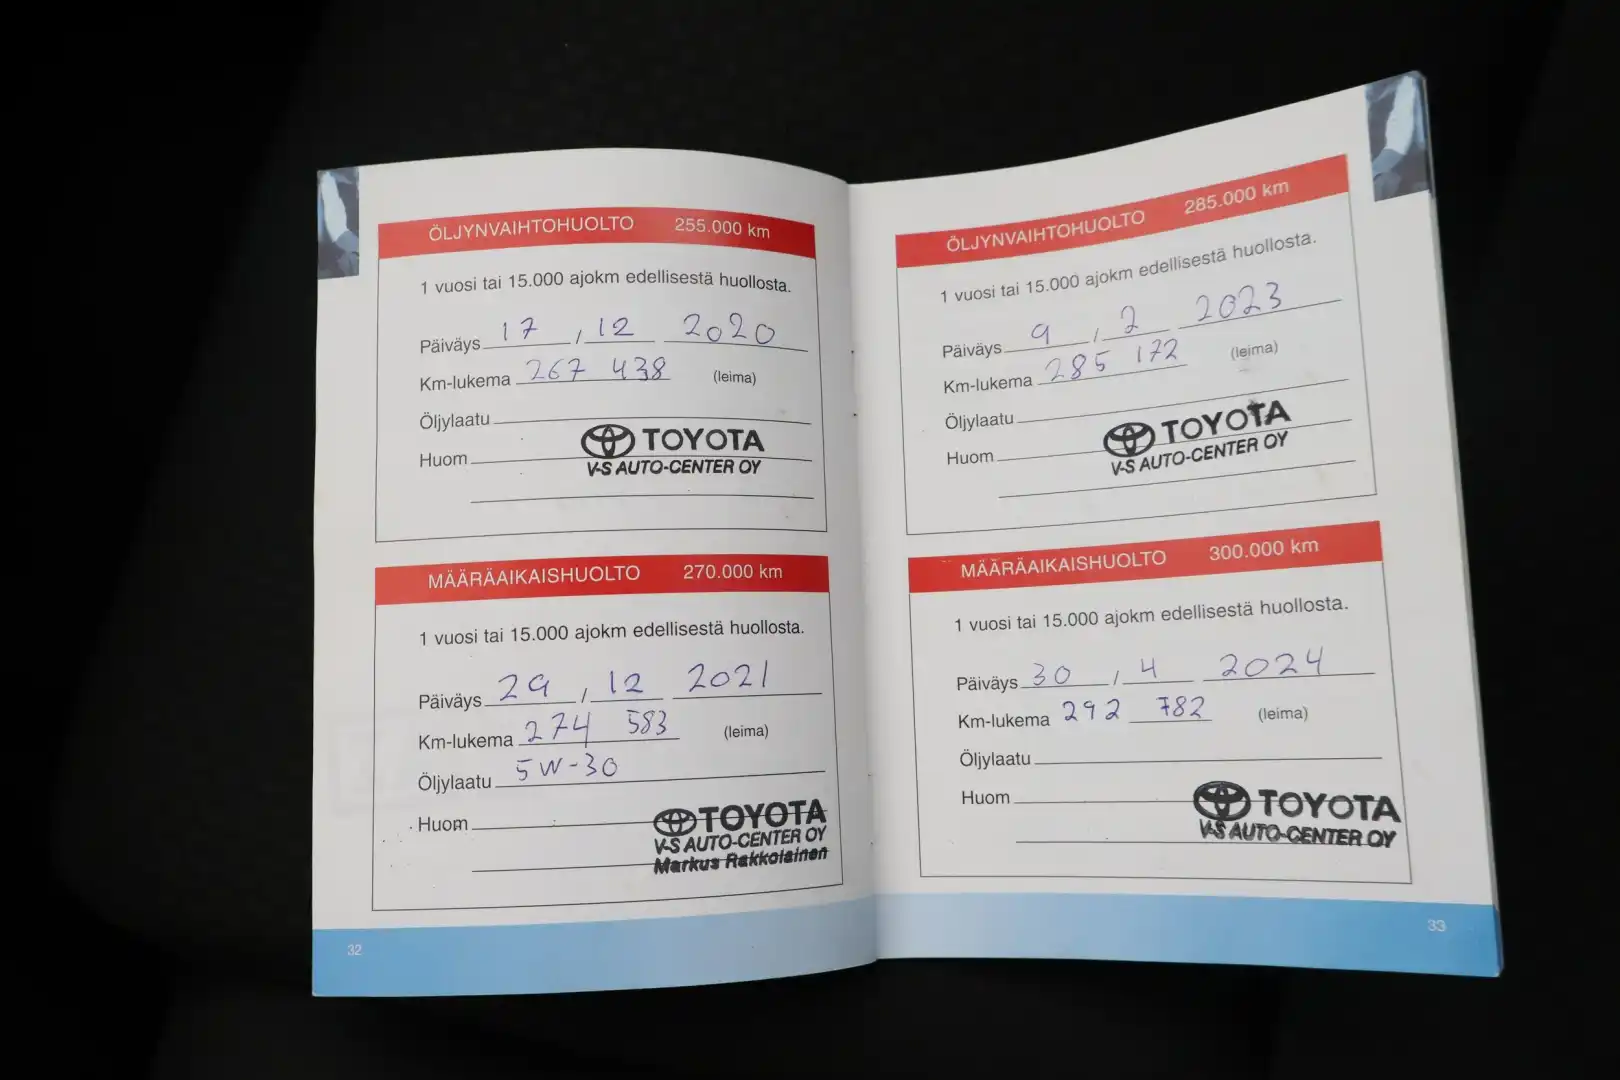 ÖLJYNVAIHTOHUOLTO 255.000 km
1 vuosi tai 15.000 ajokm edellisestä huollosta.
Päiväys 17 , 12 2020
Km-lukema 267 438 (leima)
Öljylaatu
Huom
TOYOTA
V-S AUTO-CENTER OY
MÄÄRÄAIKAISHUOLTO 270.000 km
1 vuosi tai 15.000 ajokm edellisestä huollosta.
Päiväys 29 , 12 2021
Km-lukema 274 583 (leima)
Öljylaatu 5W-30
Huom
TOYOTA
V-S AUTO-CENTER OY
Markus Rakkolainen
32
ÖLJYNVAIHTOHUOLTO 285.000 km
1 vuosi tai 15.000 ajokm edellisestä huollosta.
Päiväys 9 , 2 2023
Km-lukema 285 172 (leima)
Öljylaatu
Huom
TOYOTA
V-S AUTO-CENTER OY
MÄÄRÄAIKAISHUOLTO 300.000 km
1 vuosi tai 15.000 ajokm edellisestä huollosta.
Päiväys 30 , 4 2024
Km-lukema 292 782 (leima)
Öljylaatu
Huom
TOYOTA
V-S AUTO-CENTER OY
33